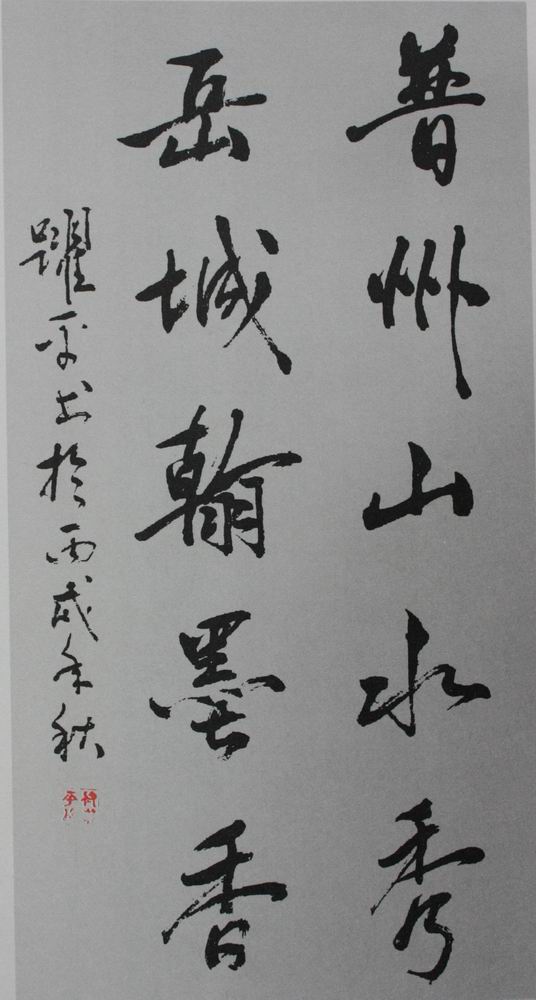 普州山水秀
岳城翰墨香
躍平书於丙戌年秋